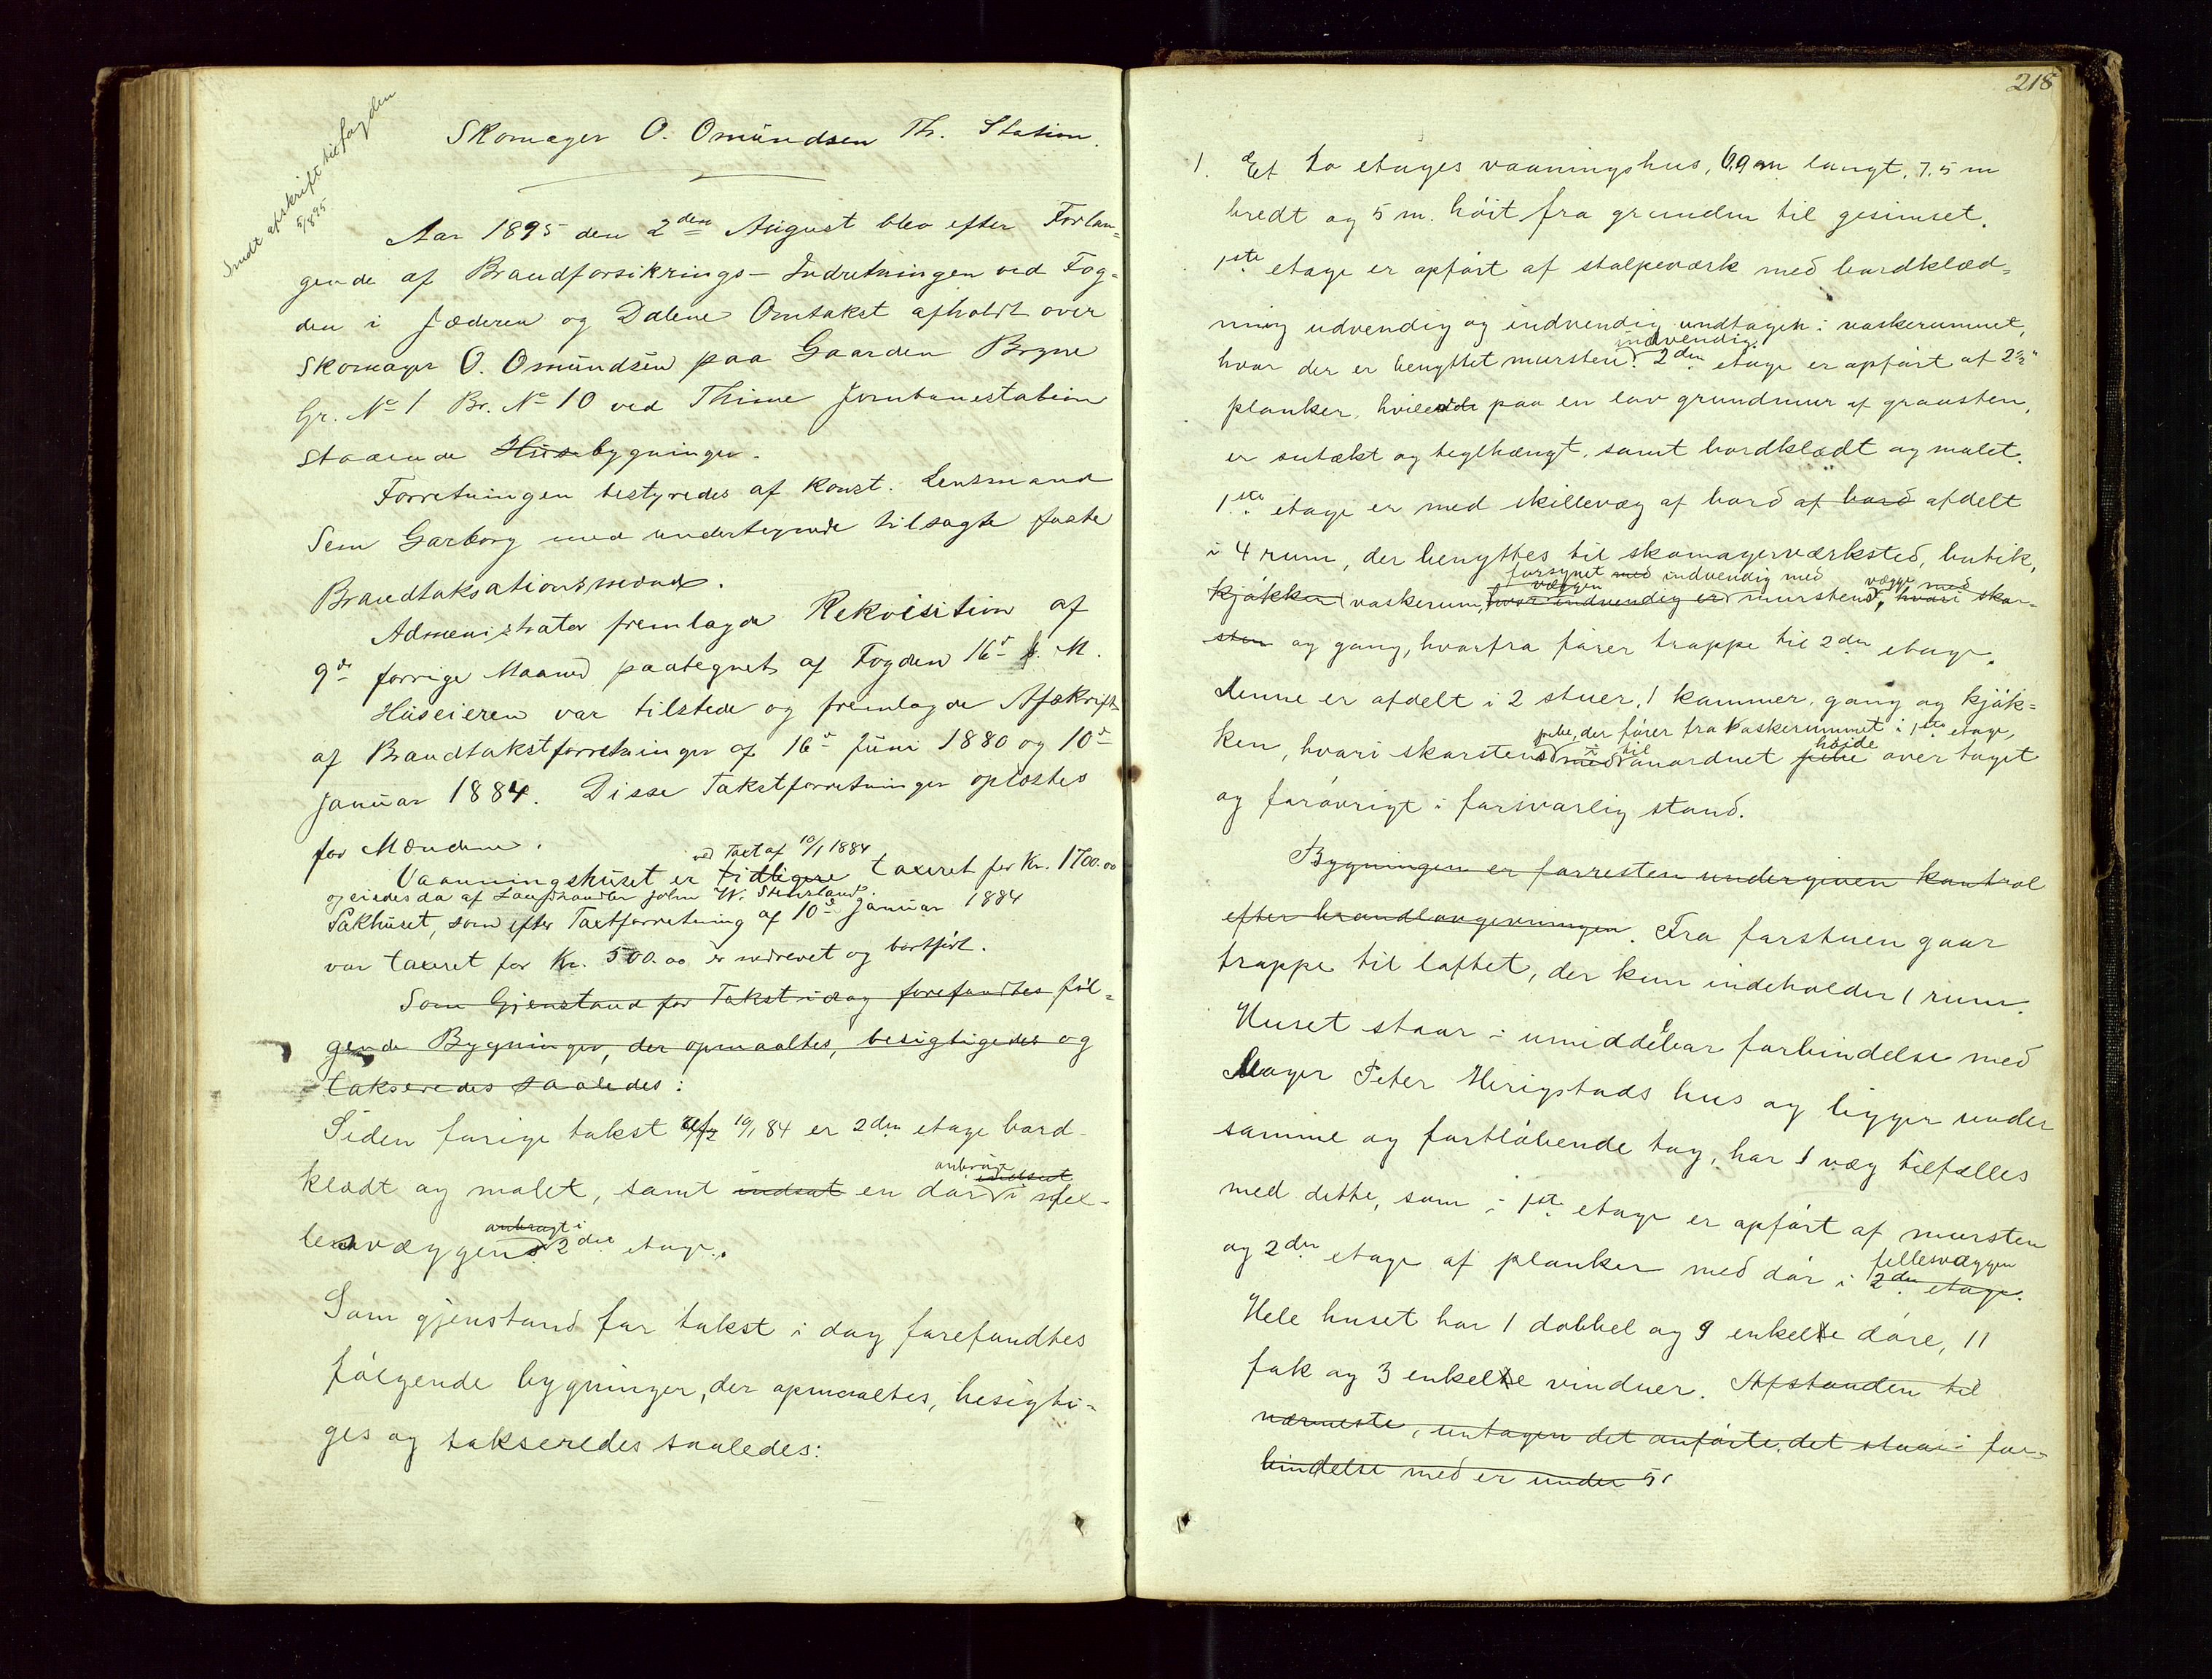 Sendt afskrift til fogden
5/8 95
Skomager O. Omündsen Th. Station.
Aar 1895 den 2den August blev efter Forlan-
gende af Brandforsikrings-Indretningen ved Fog-
den i Jæderen og Dalene Omtakst afholdt over
Skomager O. Omündsen paa Gaarden Bryne
Gr. No 1 Br. No 10 ved Thime Jernbanestation
staaende Husebygninger.
Forretningen bestyredes af konst. Lensmand
Sem Garborg med undertegnede tilsagte faste
Brandtaksationsmænd.
Administrator fremlagde Rekvisition af
9de forrige Maaned paategnet af Fogden 16de f. M.
Hüseieren var tilstede og fremlagde Afskrift
af Brandtakstforretninger af 16de Jüni 1880 og 10de
Januar 1884. Disse Takstforretninger oplæstes
for Mændene.
ved Taxt af 10/1 1884
Vaaningshüset er tidligere taxeret for Kr. 1700.00
og eiedes da af Landhandler John W.
Pakhüset, som efter Taxtforretning af 10de Januar 1884
var taxeret for Kr. 500.00 er nedrevet og bortført.
Som Gjenstand for Takst idag forefandtes føl-
gende Bygninger, der opmaaltes, besigtigedes og
takseredes saaledes:
Siden forige takst 10/1 84 er 2den etage bord-
klædt og malet, samt indsat en dør i fel-
anbragt indsat
lesvæggen 2den etage.
anbragt i
Som gjenstand for takst i dag forefandtes
følgende bygninger, der opmaaltes, besigti-
ges og takseredes saaledes:
218
1. Et to etages vaaningshus, 6.9 m langt, 7.5 m
bredt og 5 m. høit fra grunden til gesimset.
1ste etage er opført af stolpeværk med bordklæd-
ning udvendig og indvendig undtagen i vaskerummet,
indvendig.
hvor der er benyttet mursten. 2den etage er opført af 2½"
planker, hvilende paa en lav grundmur af graasten,
er sutækt og teglhængt, samt bordklædt og malet.
1ste etage er med skillevæg af bord af bord afdelt
i 4 rum, der benyttes til skomagerværksted, butik,
forsynet med indvendig med
væggen vægge med
kjøkken vaskerum, hvor indvendig er mursten, hvori skor-
sten og gang, hvorfra fører trappe til 2den etage.
Denne er afdelt i 2 stuer, 1 kammer, gang og kjøk-
pibe, der fører fra vaskerummet i 1ste etage,
til høide
ken, hvori skorstens med anordnet pibe over taget
og forøvrigt i forsvarlig stand.
Bygningen er forresten undergiven kontrol
efter brandlovgivningen. Fra forstuen gaar
trappe til loftet, der kun indeholder 1 rum.
Huset staar i umiddelbar forbindelse med
Mager Peter Herigstads hus og ligger under
samme og fortløbende tag, har 1 væg tilfælles
med dette, som i 1ste etage er opført af mursten
fellesvæggen
og 2den etage af planker med dør i 2den etage.
Hele huset har 1 dobbel og 9 enkelte døre, 11
fak og 3 enkelte vinduer. Afstanden til
nærmeste, untagen det anførte, det staar i for-
bindelse med er under 5'